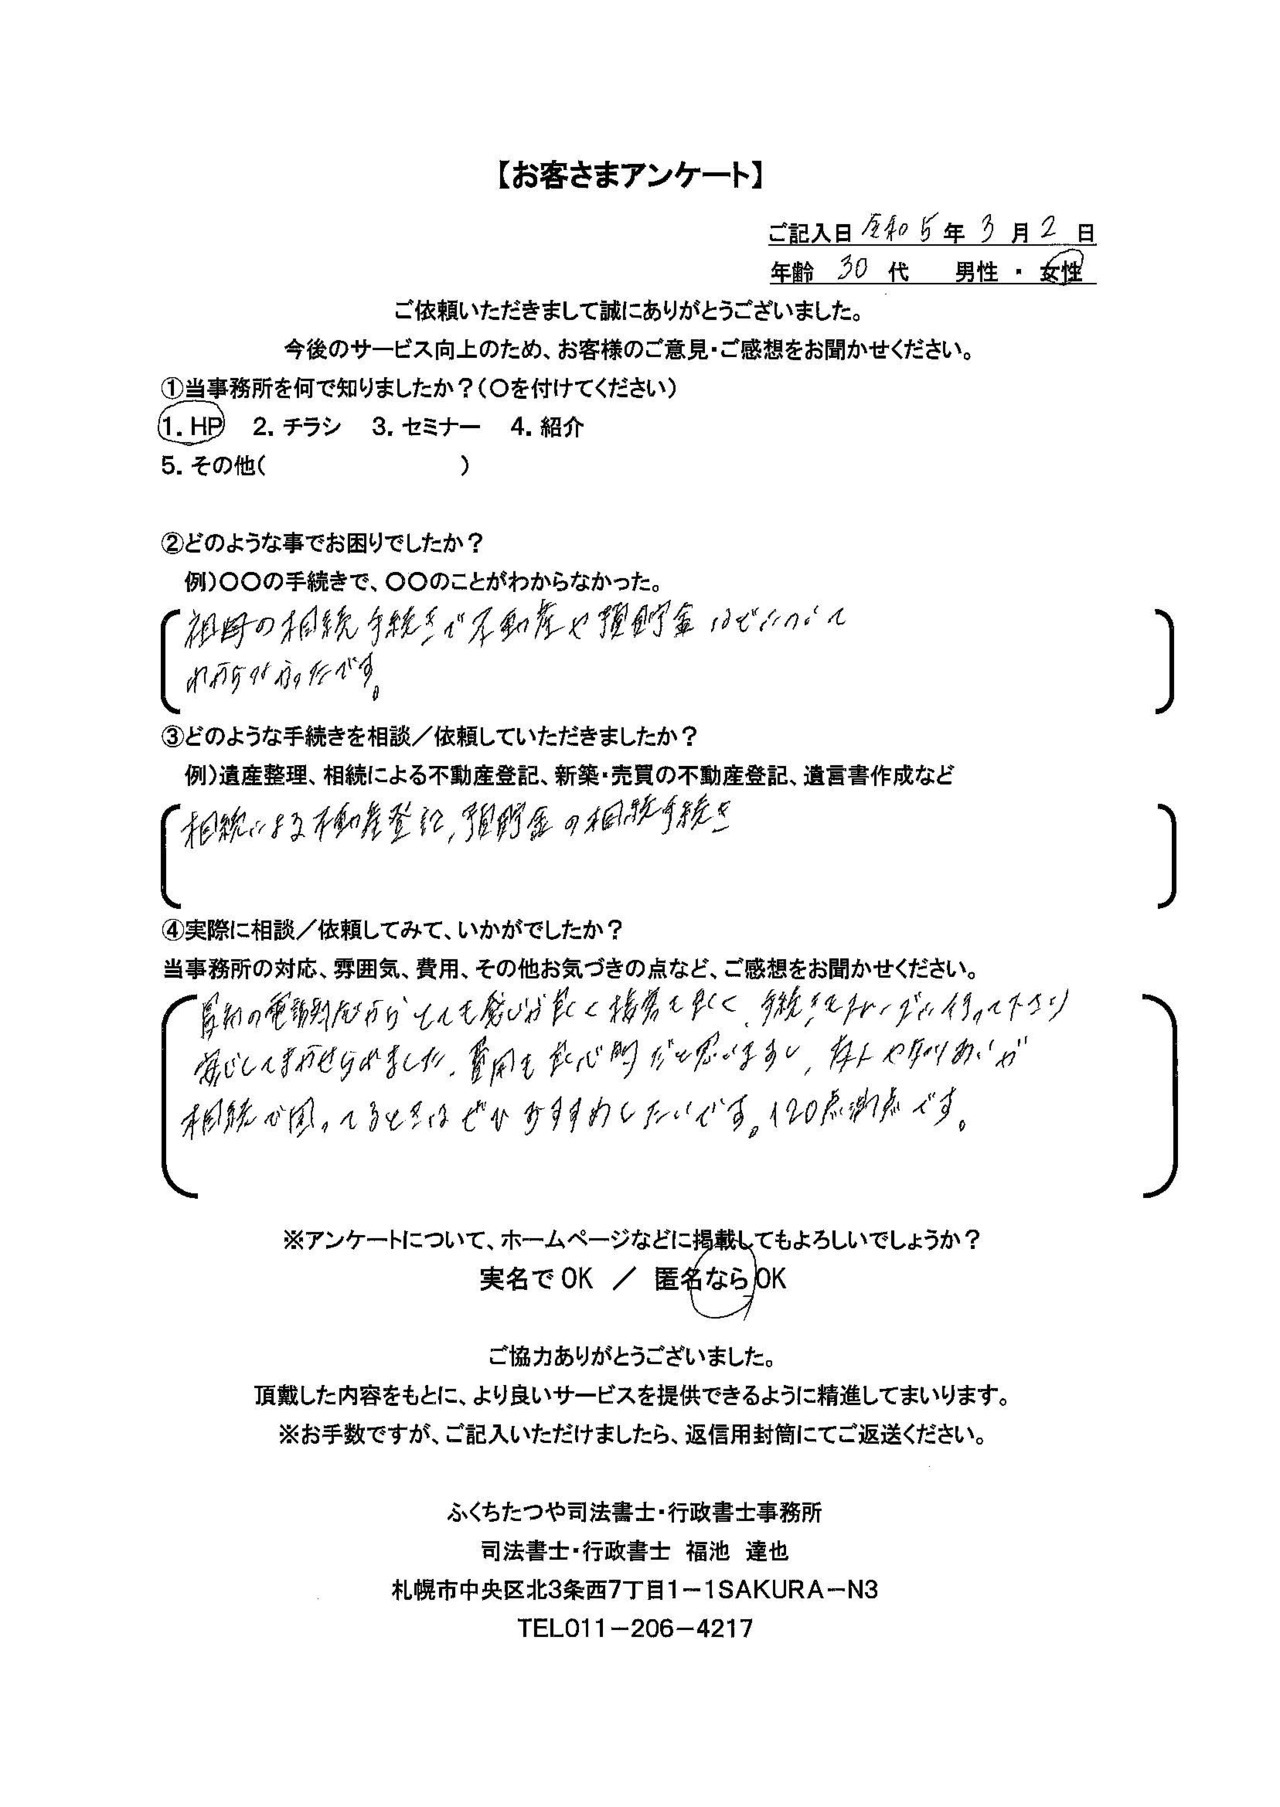 【お客さまアンケート】
ご記入日 令和5年 3月 2日
年齢 30 代 男性 ・ 女性
ご依頼いただきまして誠にありがとうございました。
今後のサービス向上のため、お客様のご意見・ご感想をお聞かせください。
①当事務所を何で知りましたか？(〇を付けてください)
1. HP 2. チラシ 3. セミナー 4. 紹介
5. その他( )
②どのような事でお困りでしたか？
例)〇〇の手続きで、〇〇のことがわからなかった。
祖母の相続手続きで不動産や預貯金などについて
わからなかったです。
③どのような手続きを相談／依頼していただきましたか？
例)遺産整理、相続による不動産登記、新築・売買の不動産登記、遺言書作成など
相続による不動産登記、預貯金の相続手続き
④実際に相談／依頼してみて、いかがでしたか？
当事務所の対応、雰囲気、費用、その他お気づきの点など、ご感想をお聞かせください。
最初の電話対応からとても感じが良く接客も良く、手続きもスムーズに行って下さり
安心してまかせられました。費用も良心的だと思いますし、友人や知りあいが
相続で困ってるときはぜひおすすめしたいです。120点満点です。
※アンケートについて、ホームページなどに掲載してもよろしいでしょうか？
実名でOK ／ 匿名ならOK
ご協力ありがとうございました。
頂戴した内容をもとに、より良いサービスを提供できるように精進してまいります。
※お手数ですが、ご記入いただけましたら、返信用封筒にてご返送ください。
ふくちたつや司法書士・行政書士事務所
司法書士・行政書士 福池 達也
札幌市中央区北3条西7丁目1－1SAKURA－N3
TEL011－206－4217